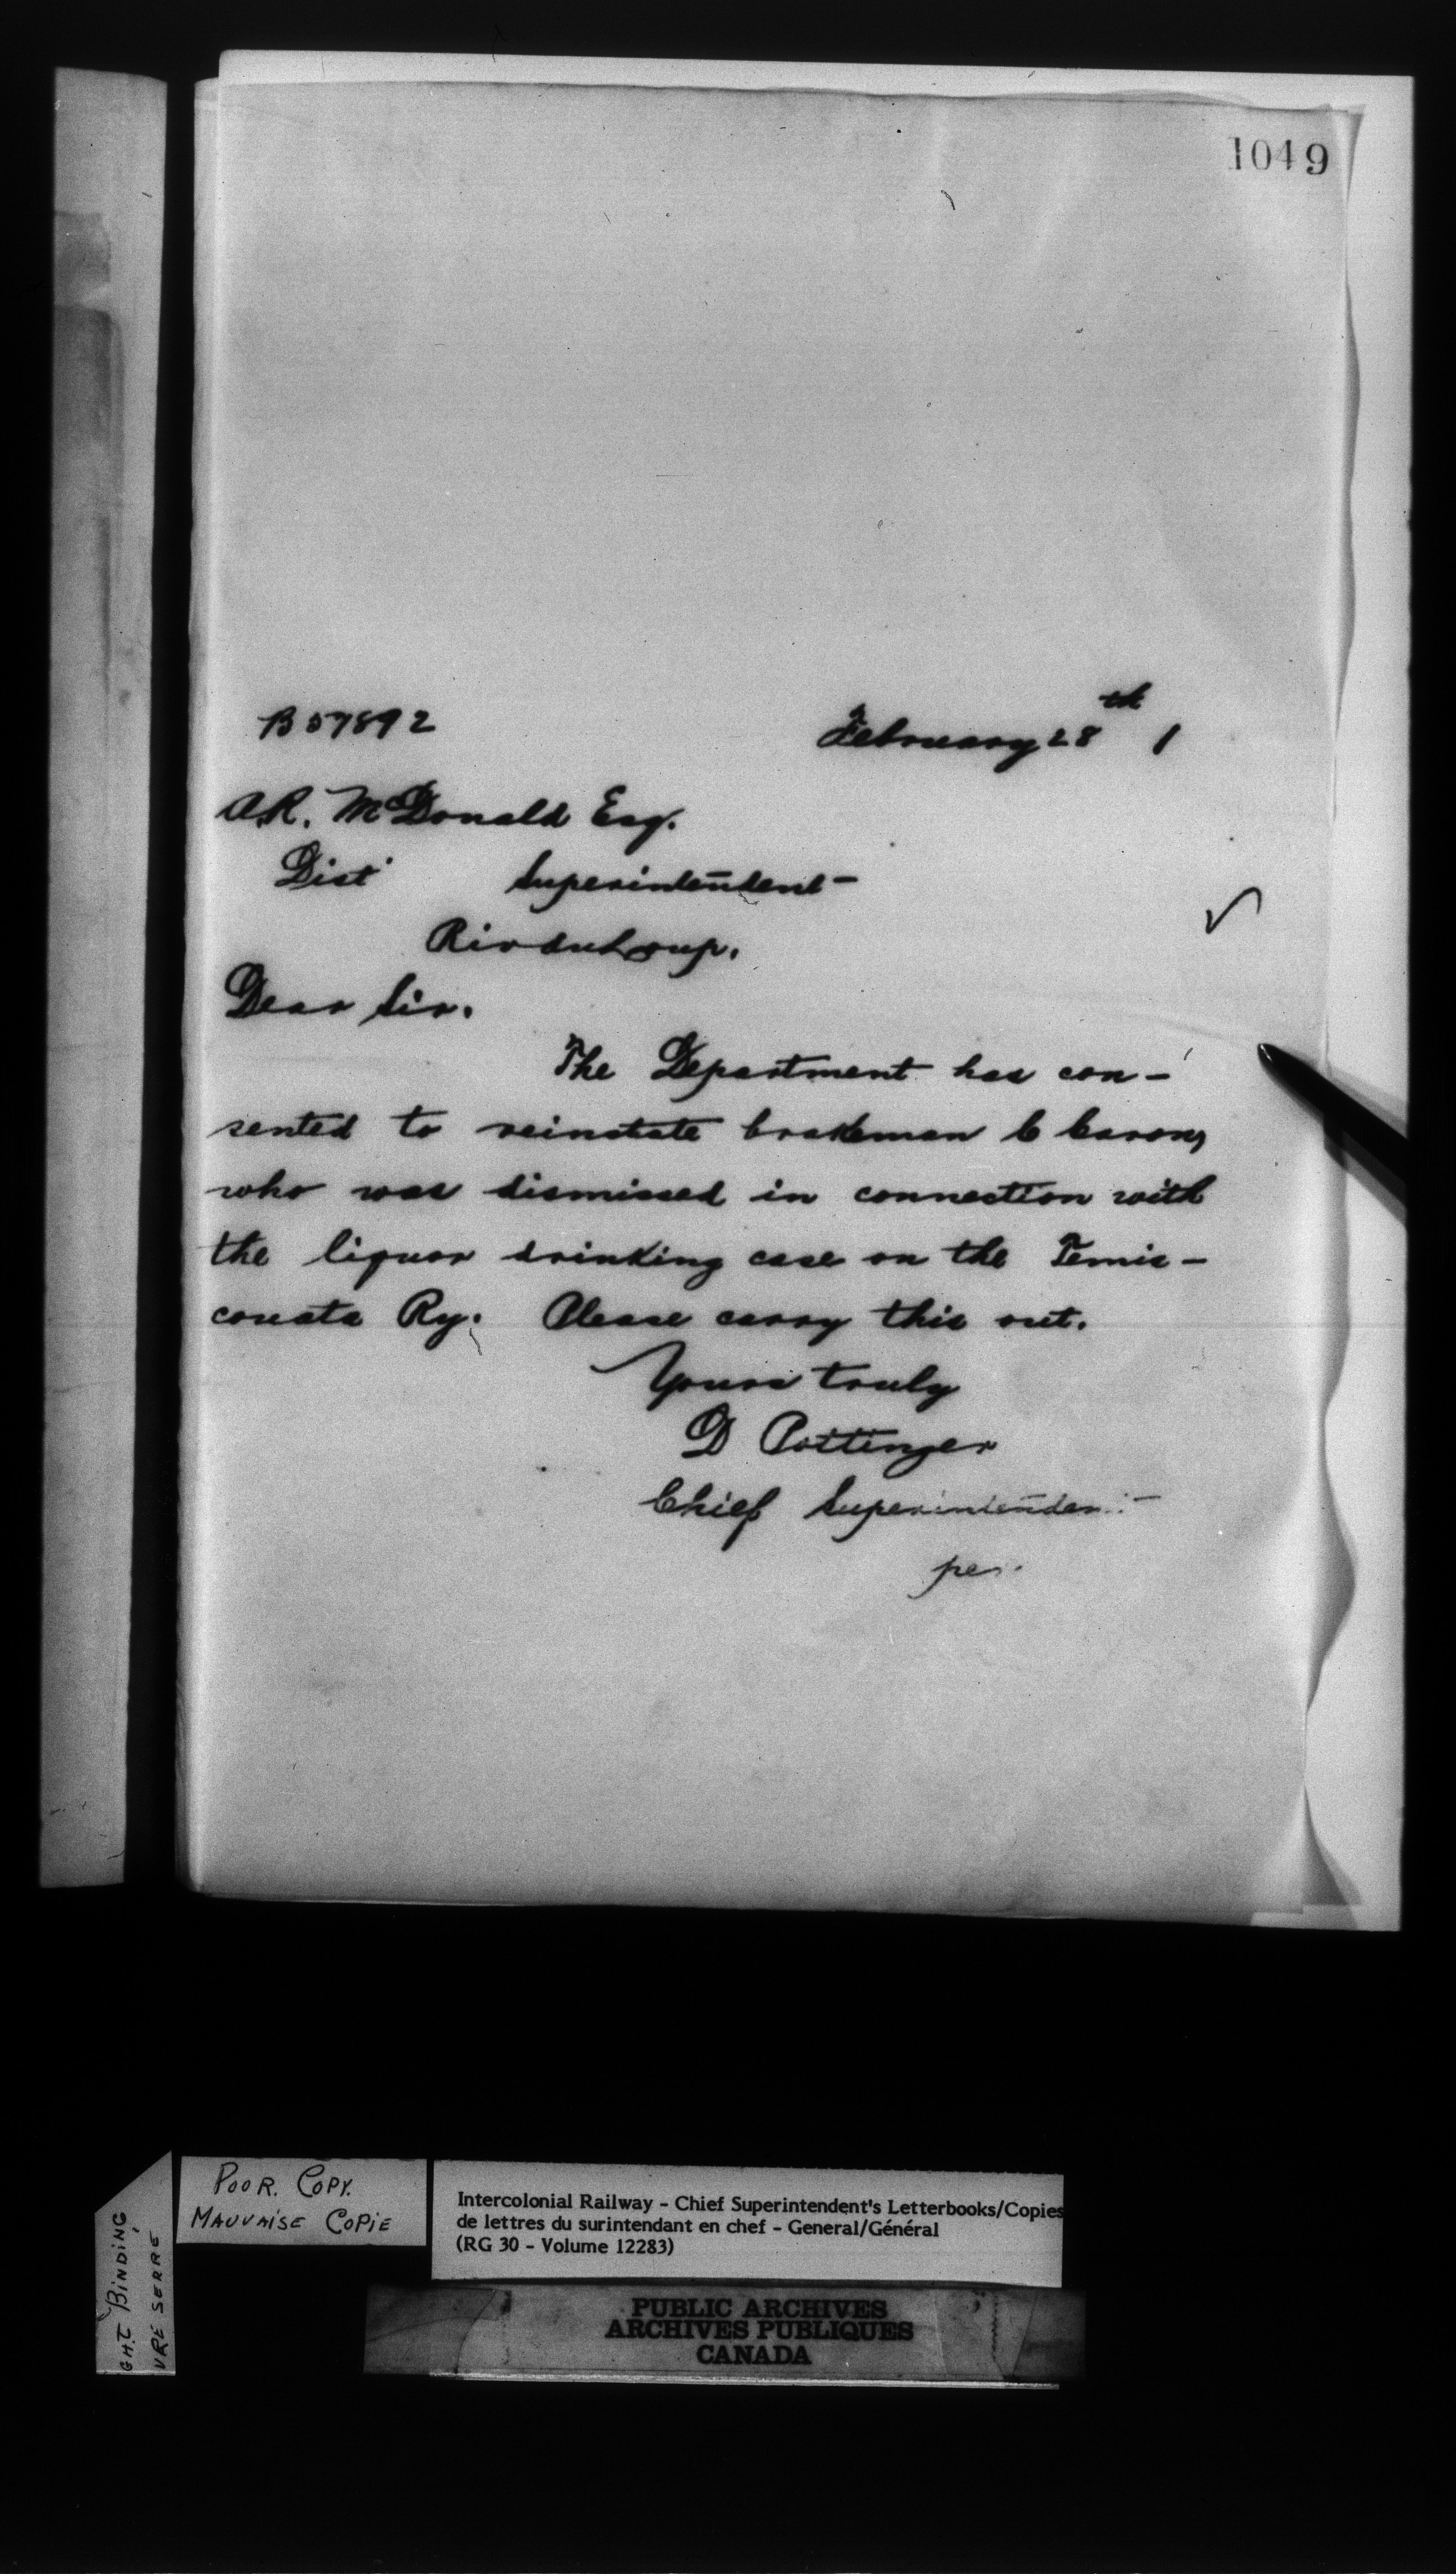 1049
B 57892
February 28th 1
A.R. McDonald Esq.
Dist Superintendent
Riv du Loup.
Dear Sir.
The Department has con-
sented to reinstate brakeman C Caron,
who was dismissed in connection with
the liquor drinking case on the Temis-
couata Ry. Please carry this out.
Yours truly
D Pottinger
Chief Superintendent
per.
POOR. COPY.
MAUVAISE COPIE
GHT BINDING
VRE SERRE
Intercolonial Railway - Chief Superintendent's Letterbooks/Copies
de lettres du surintendant en chef - General/Général
(RG 30 - Volume 12283)
PUBLIC ARCHIVES
ARCHIVES PUBLIQUES
CANADA